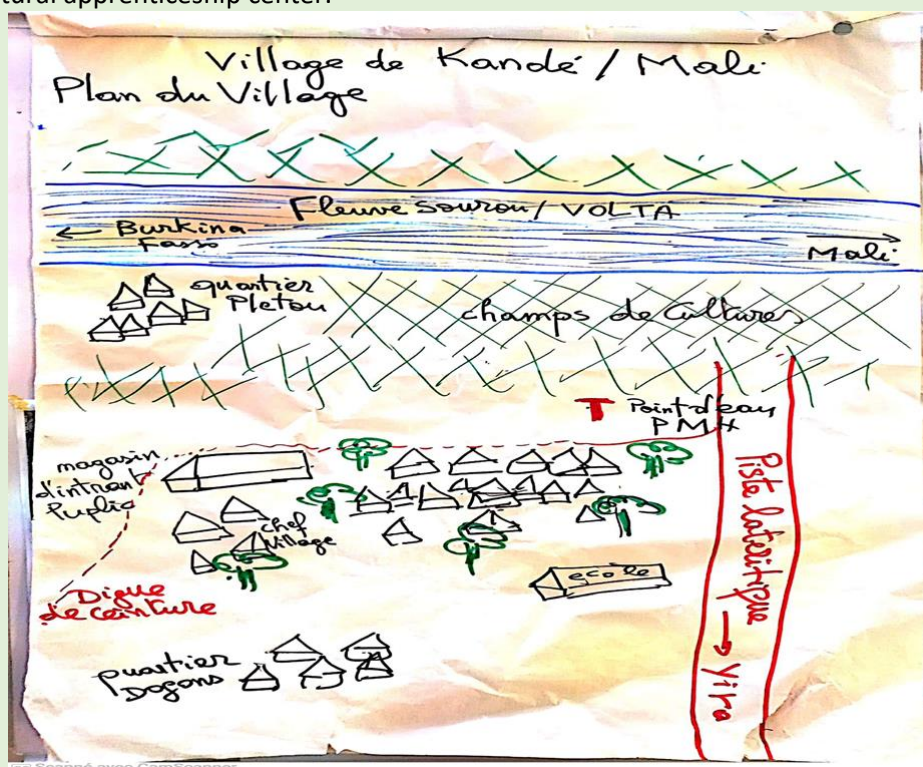 tural apprenticeship center.
Village de Kandé / Mali
Plan du Village
Fleuve Sourou / VOLTA
← Burkina
Fasso
Mali
quartier
Pletou
champs de Cultures
T Point d'eau
PMH
magasin
d'intrant
Puplic
chef
Village
école
Digue
de ceinture
quartier
Dogons
Piste lateritique → Yira
Scanné avec CamScanner